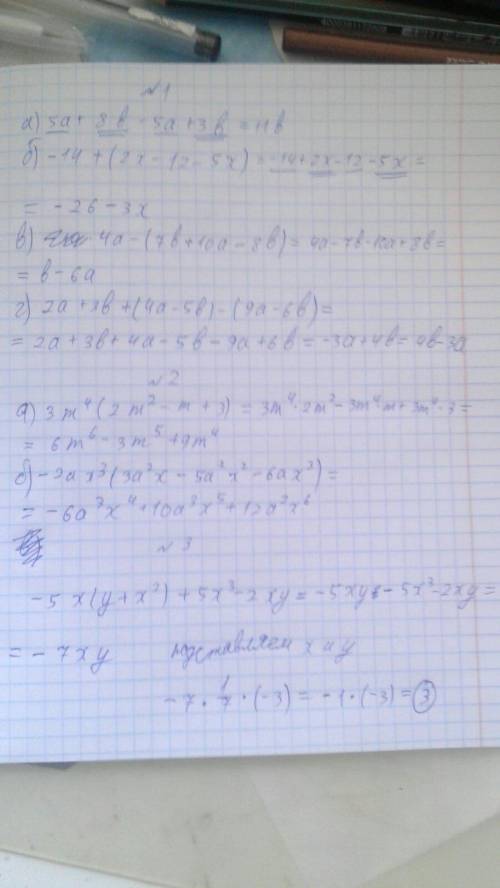 №1
а) 5a + 8b - 5a + 3b = 11b
б) -14 + (2x - 12 - 5x) = -14 + 2x - 12 - 5x =
= -26 - 3x
в) 4a - (7b + 10a - 8b) = 4a - 7b - 10a + 8b =
= b - 6a
г) 2a + 3b + (4a - 5b) - (9a - 6b) =
= 2a + 3b + 4a - 5b - 9a + 6b = -3a + 4b = 4b - 3a
№2
а) 3m⁴(2m² - m + 3) = 3m⁴·2m² - 3m⁴m + 3m⁴·3 =
= 6m⁶ - 3m⁵ + 9m⁴
б) -2ax³(3a²x - 5a²x² - 6ax³) =
= -6a³x⁴ + 10a³x⁵ + 12a²x⁶
№3
-5x(y + x²) + 5x³ - 2xy = -5xy - 5x³ - 2xy =
= -7xy подставляем x и y
-7 · 1/7 · (-3) = -1 · (-3) = 3